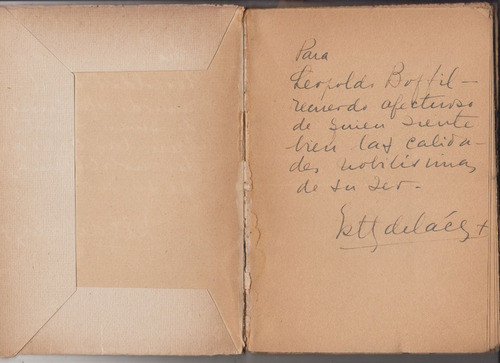 Para
Leopoldo Boffil-
recuerdo afectuoso
de quien siente
bien las calida-
des nobilísimas
de su ser-
Esth de Cáceres